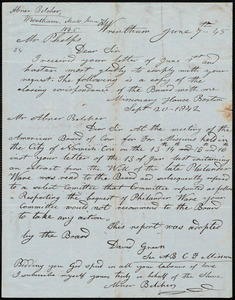 Abner Belcher,
Wrentham, Mass June
1845
Wrentham June 9th 45
Mr. Phelps
Dear Sir
I received your letter of June 1st and
hasten most gladly to comply with your
request. The following is a copy of the
closing correspondence of the Board with me
Missionary House Boston
Sept 20 - 1842
Mr Abner Belcher
Dear Sir At the meeting of the
American Board of Com for For Missions held in
the City of Norwich Con on the 13th 14 and 15 & 16
inst your letter of the 13 of Jan last containing
an extract from the Will of the late Philander
Ware was read to the Board and subsequently referred
to a select Committee that Committee reported as follows
Respecting the bequest of Philander Ware your
Committee would not recommend to the Board
to take any action.
This report was adopted
by the Board
David Green
Sec A B C F Missions
Bidding you God speed in all your labours of love
I subscribe myself yours truly in behalf of the Slave
Abner Belcher